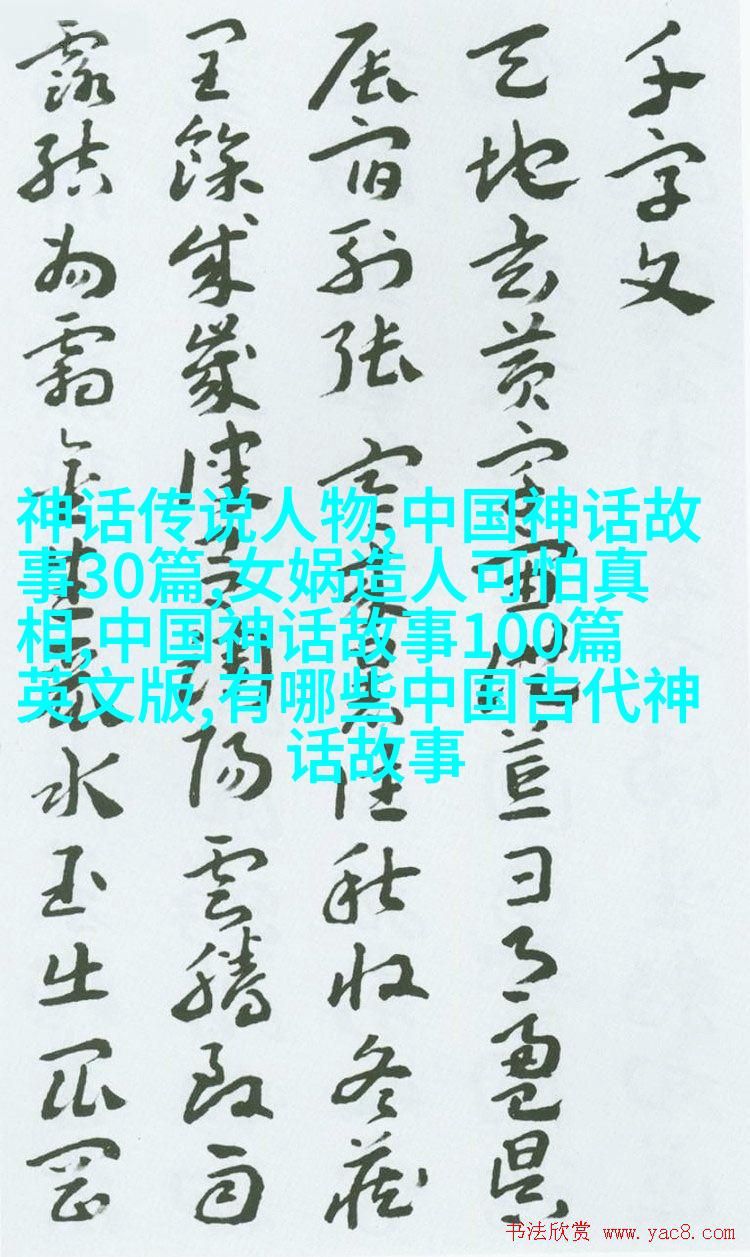 千字文
天地玄黃宇宙洪荒日月盈昃
辰宿列張寒來暑往秋收冬藏
閏餘成歲律呂調陽雲騰致雨
露結為霜金生麗水玉出崑岡
神话传说人物,中国神话故
事30篇,女娲造人可怕真
相,中国神话故事100篇
英文版,有哪些中国古代神
话故事
书法欣赏 www.yac8.com